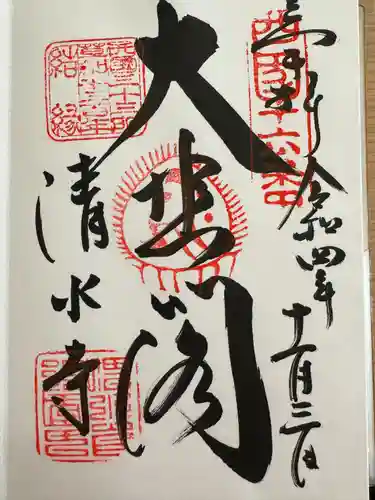 奉拝 令和四年十一月三日
西国十六番
大悲閣
清水寺